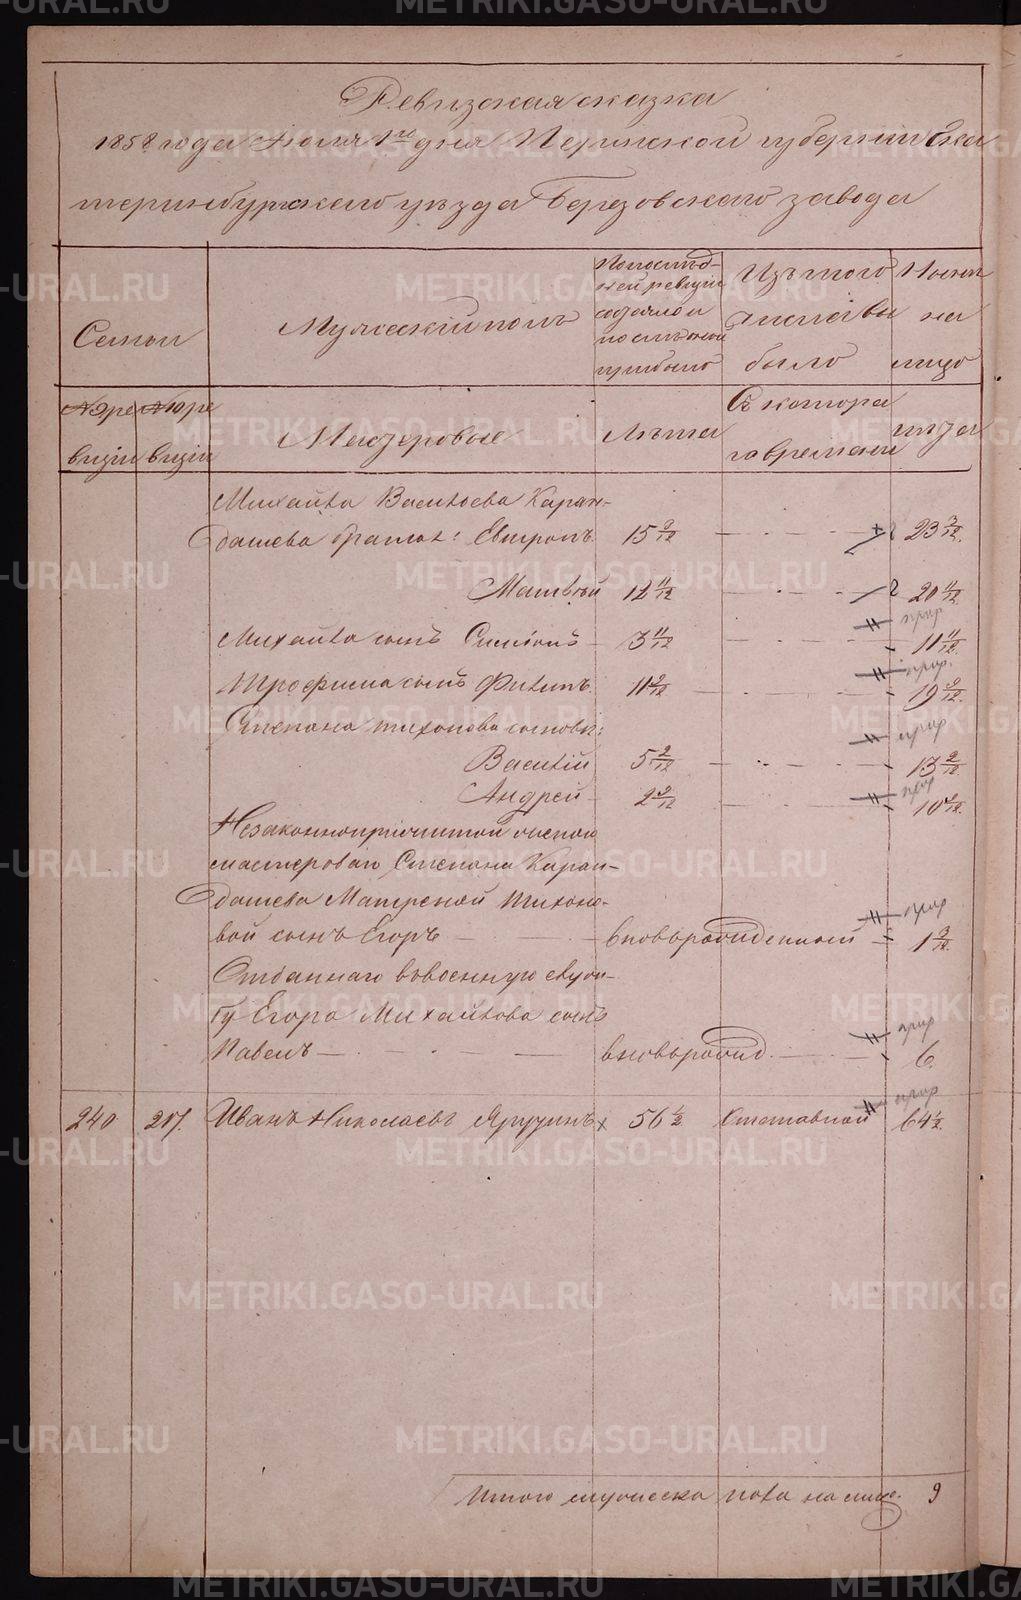 Ревизская сказка
1858 года Июля 1го дня Пермской губернии Ека
теринбургскаго уезда Березовскаго завода
Семьи
Мужескій полъ
По послед-
ней ревизіи
состояло и
после оной
прибыло
Изъ того
числа вы
было
Ныне
на
лицо
№ 9 ре
визіи
№ 10 ре
визіи
Мастеровые
Лѣта
Съ котора
го времени
лѣта
Михайла Васильева Каран-
дашева братья: Евтропъ 15 9/12 23 3/12
Матвѣй 12 11/12 20 11/12
Михайла сынъ Симіонъ 3 11/12 прир 11 11/12
Трофима сынъ Филипъ 11 2/12 прир. 19 2/12
Степана Тихонова сыновья:
Василій 5 2/12 прир 13 2/12
Андрей 2 2/12 прир 10 2/12
Незаконноприжитой женою
мастероваго Степана Каран-
дашева Матреной Тихоно-
вой сынъ Егоръ вновьрожденный прир 1 3/12
Отданнаго въ военную служ-
бу Егора Михайлова сынъ
Павелъ вновьрожд. прир 6
240 217. Иванъ Николаевъ Яруинъ 56 1/2 Отставной прир 64 1/2
Итого мужеска пола на лицо. 9
METRIKI.GASO-URAL.RU